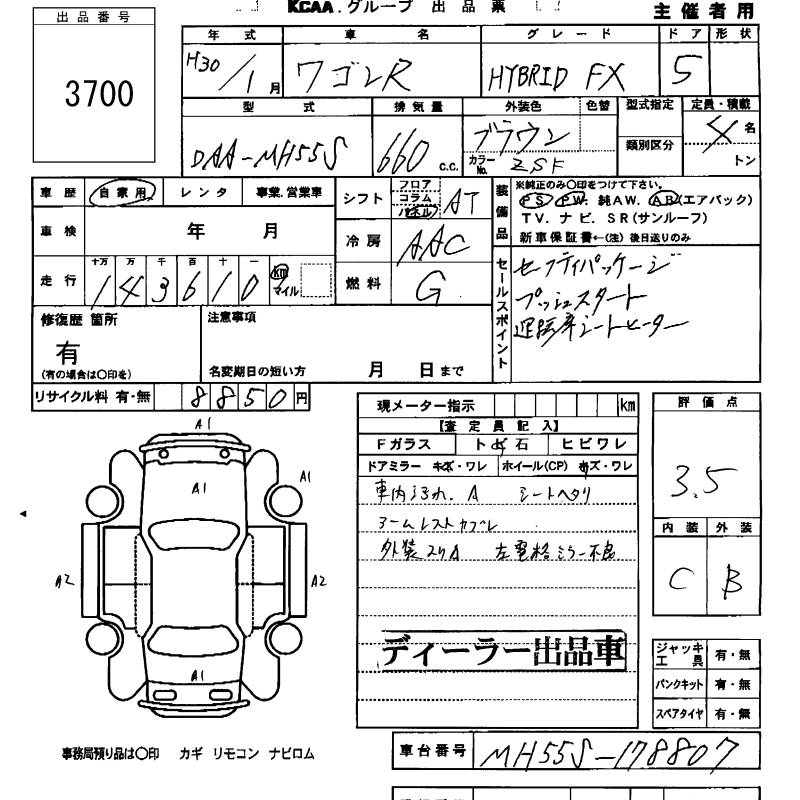 KCAA.グループ 出品票
主催者用
出品番号
3700
年式 車名 グレード ドア 形状
H30/1月 ワゴンR HYBRID FX 5
型式 排気量 外装色 色替 型式指定 定員・積載
DAA-MH55S 660 c.c. ブラウン 類別区分 4名
カラーNo. ZSF トン
車歴 自家用 レンタ 事業.営業車
シフト フロア コラム パネル AT
車検 年 月
冷房 AAC
走行 十万 万 千 百 十 一
143610 km マイル
燃料 G
装備品
※純正のみ〇印をつけて下さい。
PS PW 純AW. AB(エアバック)
TV. ナビ. SR(サンルーフ)
新車保証書←(注)後日送りのみ
セールスポイント
セーフティパッケージ
プッシュスタート
運転席シートヒーター
修復歴 箇所
有
(有の場合は〇印を)
注意事項
名変期日の短い方 月 日まで
リサイクル料 有・無 8850円
現メーター指示 km
【査定員記入】
Fガラス トビ石 ヒビワレ
ドアミラー キズ・ワレ ホイール(CP) キズ・ワレ
車内よごれ. A シートヘタリ
アームレストカブレ
外装スリA 左電格ミラー不良
ディーラー出品車
評価点
3.5
内装 外装
C B
A1
A1
A1
A2
A2
A1
ジャッキ工具 有・無
パンクキット 有・無
スペアタイヤ 有・無
事務局預り品は〇印 カギ リモコン ナビロム
車台番号 MH55S-178807